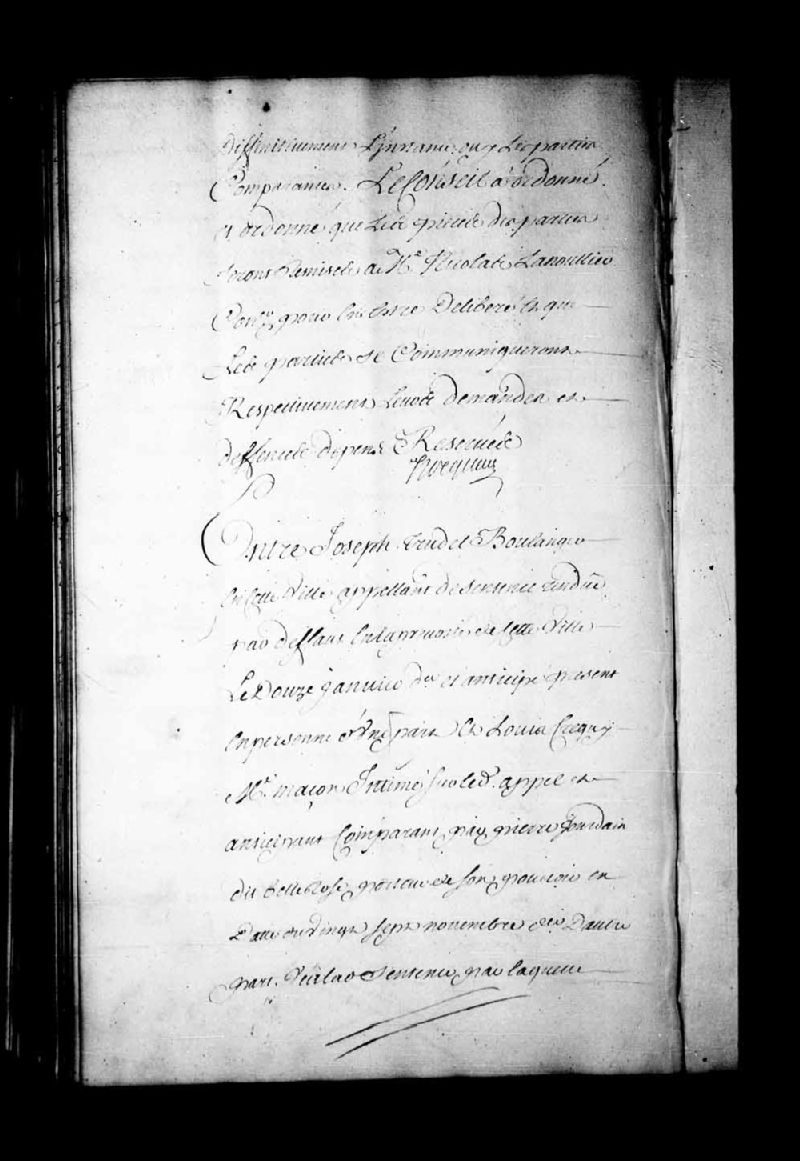 diffinitivement L'Instance, ouy Les parties
Comparantes. Le Conseil a ordonné
et ordonné que Les pieces des parties
seront Remises a Me Nicolas Lanoullier
Coner pour En Estre Deliberé Et que
Les parties se Communiqueront
Respectivement Leurs demandes et
deffences dépens Reservés
Hocquart
Entre Joseph Trudel Boulanger
En cette Ville appellant de sentence rendüe
par deffaut En la prevosté de cette Ville
Le Douze Janvier der et anticipé present
En personne d'Une part Et Louis Crequy
Me maçon Intimé sur led. appel et
anticipant Comparant par pierre Jourdain
dit bellerose porteur de son pouvoir en
Date du Vingt sept novembre der D'autre
part. Veu lad Sentence par laquelle